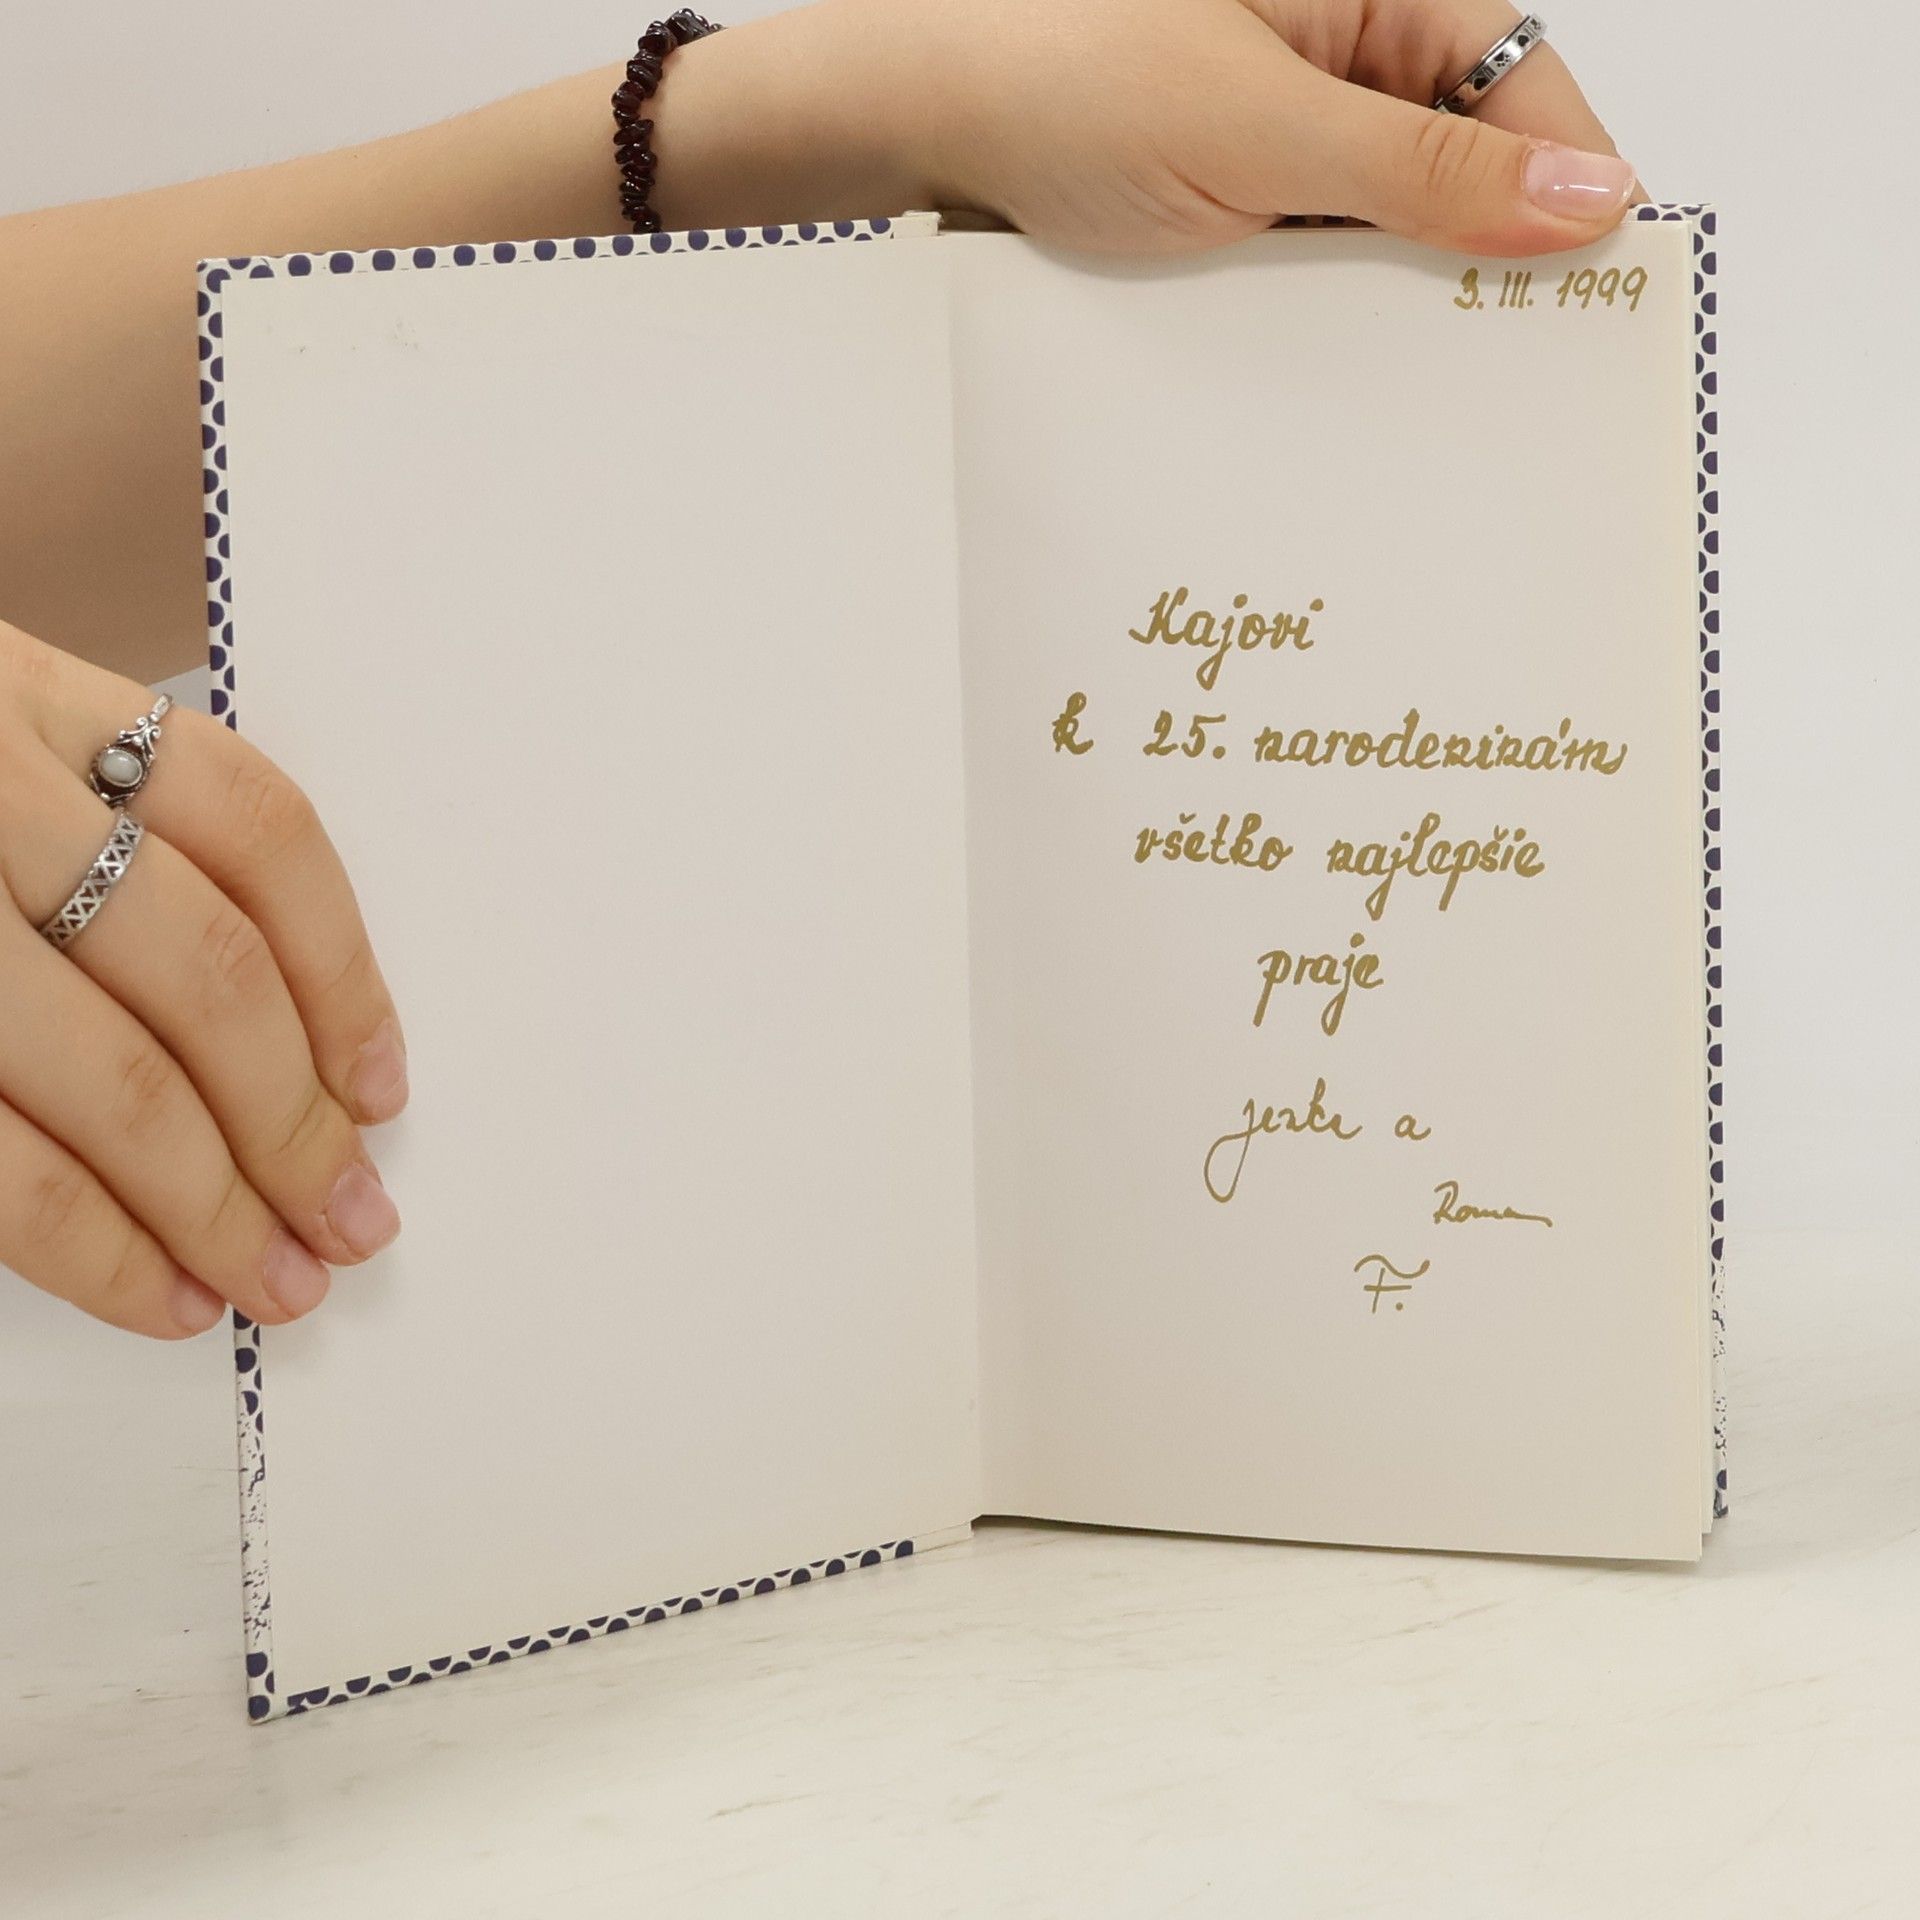 3. III. 1999
Kajovi
k 25. narodeninám
všetko najlepšie
praje
a
Roman
F.